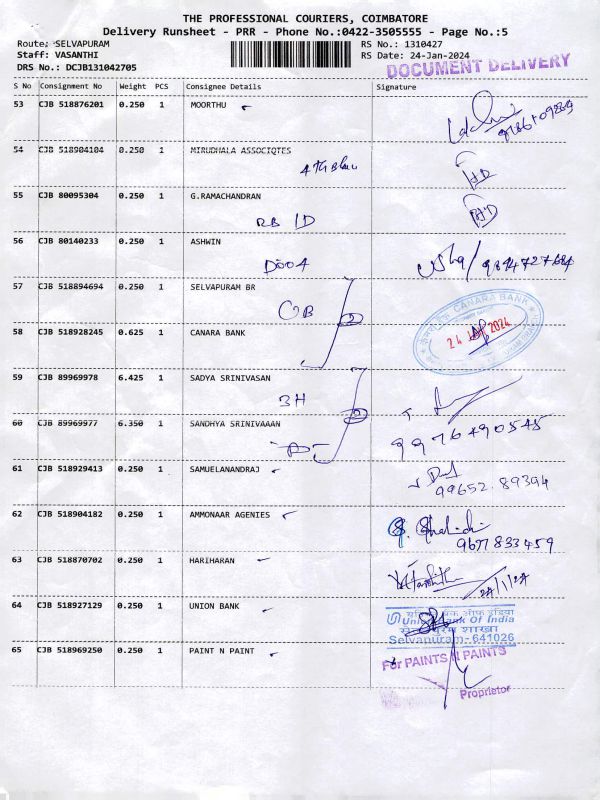 THE PROFESSIONAL COURIERS, COIMBATORE
Delivery Runsheet - PRR - Phone No.:0422-3505555 - Page No.:5
Route: SELVAPURAM
RS No.: 1310427
Staff: VASANTHI
RS Date: 24-Jan-2024
DRS No.: DCJB131042705
DOCUMENT DELIVERY
S No Consignment No Weight PCS Consignee Details Signature
53 CJB 518876201 0.250 1 MOORTHU
54 CJB 518904104 0.250 1 MIRUDHALA ASSOCIQTES
55 CJB 80095304 0.250 1 G.RAMACHANDRAN
RB ID
56 CJB 80140233 0.250 1 ASHWIN
D004
9894727684
57 CJB 518894694 0.250 1 SELVAPURAM BR
OB
CANARA BANK
24 JAN 2024
58 CJB 518928245 0.625 1 CANARA BANK
59 CJB 89969978 6.425 1 SADYA SRINIVASAN
3H
60 CJB 89969977 6.350 1 SANDHYA SRINIVAAAN
9976490545
61 CJB 518929413 0.250 1 SAMUELANANDRAJ
99652.89394
62 CJB 518904182 0.250 1 AMMONAAR AGENIES
9677833459
63 CJB 518870702 0.250 1 HARIHARAN
24/1/24
64 CJB 518927129 0.250 1 UNION BANK
यूनियन बैंक ऑफ इंडिया
Union Bank Of India
Selvapuram-641026
65 CJB 518969250 0.250 1 PAINT N PAINT
For PAINTS N PAINTS
Proprietor